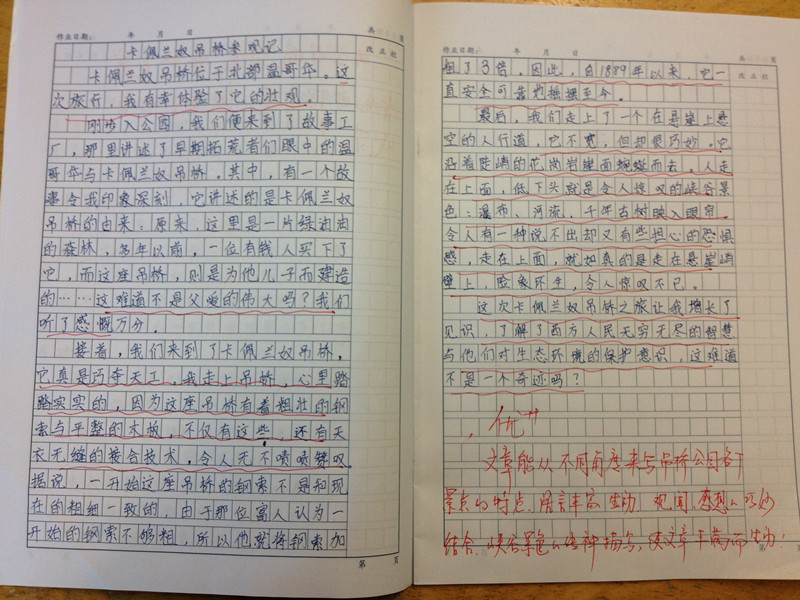 作业日期： 年 月 日 共 页
卡佩兰奴吊桥参观记
改正栏
卡佩兰奴吊桥位于北部温哥华。这
次旅行，我有幸体验了它的壮观。
刚步入公园，我们便来到了故事工
厂，那里讲述了早期拓荒者们眼中的温
哥华与卡佩兰奴吊桥。其中，有一个故
事令我印象深刻，它讲述的是卡佩兰奴
吊桥的由来：原来，这里是一片绿油油
的森林，多年以前，一位有钱人买下了
它，而这座吊桥，则是为他儿子而建造
的……这难道不是父爱的伟大吗？我们
听了感慨万分。
接着，我们来到了卡佩兰奴吊桥，
它真是巧夺天工，我走上吊桥，心里踏
踏实实的，因为这座吊桥有着粗壮的钢
索与平整的木板，不仅有这些，还有天
衣无缝的接合技术，令人无不啧啧赞叹。
据说，一开始这座吊桥的钢索不是和现
在的粗细一致的，由于那位富人认为一
开始的钢索不够粗，所以他就将钢索加
第 页
作业日期： 年 月 日 共 页
改正栏
粗了3倍，因此，自1889年以来，它一
直安全可靠地摇摆至今。
最后，我们走上了一个在悬崖上悬
空的人行道，它不宽，但却很巧妙。它
沿着陡峭的花岗岩崖面蜿蜒而去。人走
在上面，低下头就是令人惊叹的峡谷景
色：瀑布、河流、千年古树映入眼帘。
令人有一种说不出却又有些担心的恐惧
感，走在上面，就如真的是走在悬崖峭
壁上，险象环生，令人惊叹不已。
这次卡佩兰奴吊桥之旅让我增长了
见识，了解了西方人民无穷无尽的智慧
与他们对生态环境的保护意识，这难道
不是一个奇迹吗？
优
文章能从不同角度来写吊桥公园各个
景点的特点，语言丰富生动，观闻、感想巧妙
结合，峡谷景色的精神描写，使文章丰满而生动！
第 页